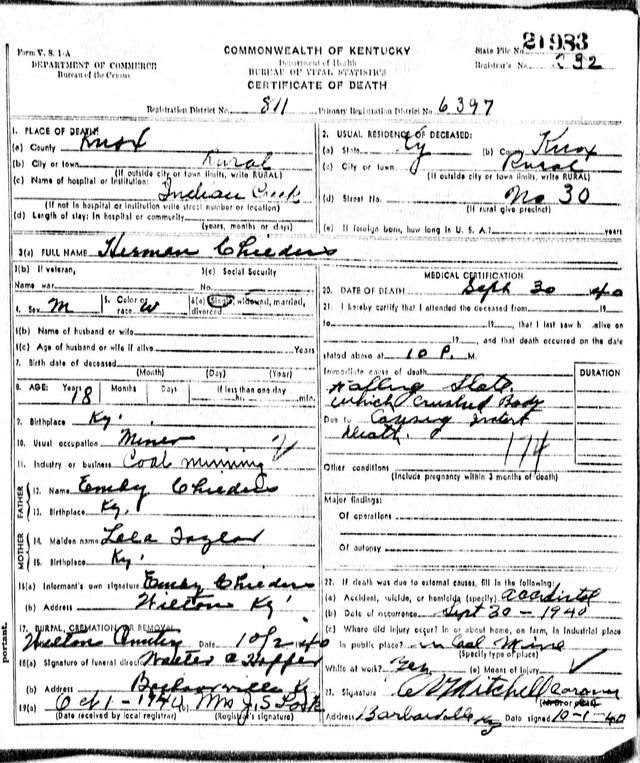 Form V. S. 1-A
DEPARTMENT OF COMMERCE
Bureau of the Census
COMMONWEALTH OF KENTUCKY
Department of Health
BUREAU OF VITAL STATISTICS
CERTIFICATE OF DEATH
State File No. 21983
Registrar's No. 292
Registration District No. 811 Primary Registration District No. 6397
1. PLACE OF DEATH:
(a) County Knox
(b) City or town Rural
(If outside city or town limits, write RURAL)
(c) Name of hospital or institution:
Indian Creek
(If not in hospital or institution write street number or location)
(d) Length of stay: In hospital or community
(years, months or days)
2. USUAL RESIDENCE OF DECEASED:
(a) State Ky (b) County Knox
(c) City or town Rural
(If outside city or town limits, write RURAL)
(d) Street No. No 30
(If rural give precinct)
(e) If foreign born, how long in U. S. A.? years
3(a) FULL NAME Herman Childers
3(b) If veteran,
Name war
3(c) Social Security
No.
4. Sex M
5. Color or race W
6(a) Single, widowed, married, divorced
6(b) Name of husband or wife
6(c) Age of husband or wife if alive Years
7. Birth date of deceased
(Month) (Day) (Year)
8. AGE: Years 18 Months Days If less than one day
hr. min.
9. Birthplace Ky.
10. Usual occupation Miner
11. Industry or business Coal minning
FATHER
12. Name Emby Childers
13. Birthplace Ky.
MOTHER
14. Maiden name Lela Taylor
15. Birthplace Ky.
16(a) Informant's own signature Emby Childers
(b) Address Wilton Ky
17. BURIAL, CREMATION OR REMOVAL
Wilton Date 10/2 40
18(a) Signature of funeral director Walter a Hopper
(b) Address Barbourville Ky
19(a) Oct 1-1940 Mrs J. S.
(Date received by local registrar) (Registrar's signature)
MEDICAL CERTIFICATION
20. DATE OF DEATH Sept 30 40
21. I hereby certify that I attended the deceased from 19
to 19, that I last saw h alive on
19, and that death occurred on the date
stated above at 10 P. M.
Immediate cause of death
Falling Slate
which crushed Body
Due to Causing instant
death.
174
DURATION
Other conditions
(Include pregnancy within 3 months of death)
Major findings:
Of operations
Of autopsy
22. If death was due to external causes, fill in the following:
(a) Accident, suicide, or homicide (specify) accidental
(b) Date of occurrence Sept 30-1940
(c) Where did injury occur? In or about home, on farm, in industrial place
in public place? in Coal Mine
(Specify type of place)
While at work? Yes (e) Means of Injury
23. Signature Mitchell Coroner
Address Barbourville Ky Date signed 10-1-40
portant.